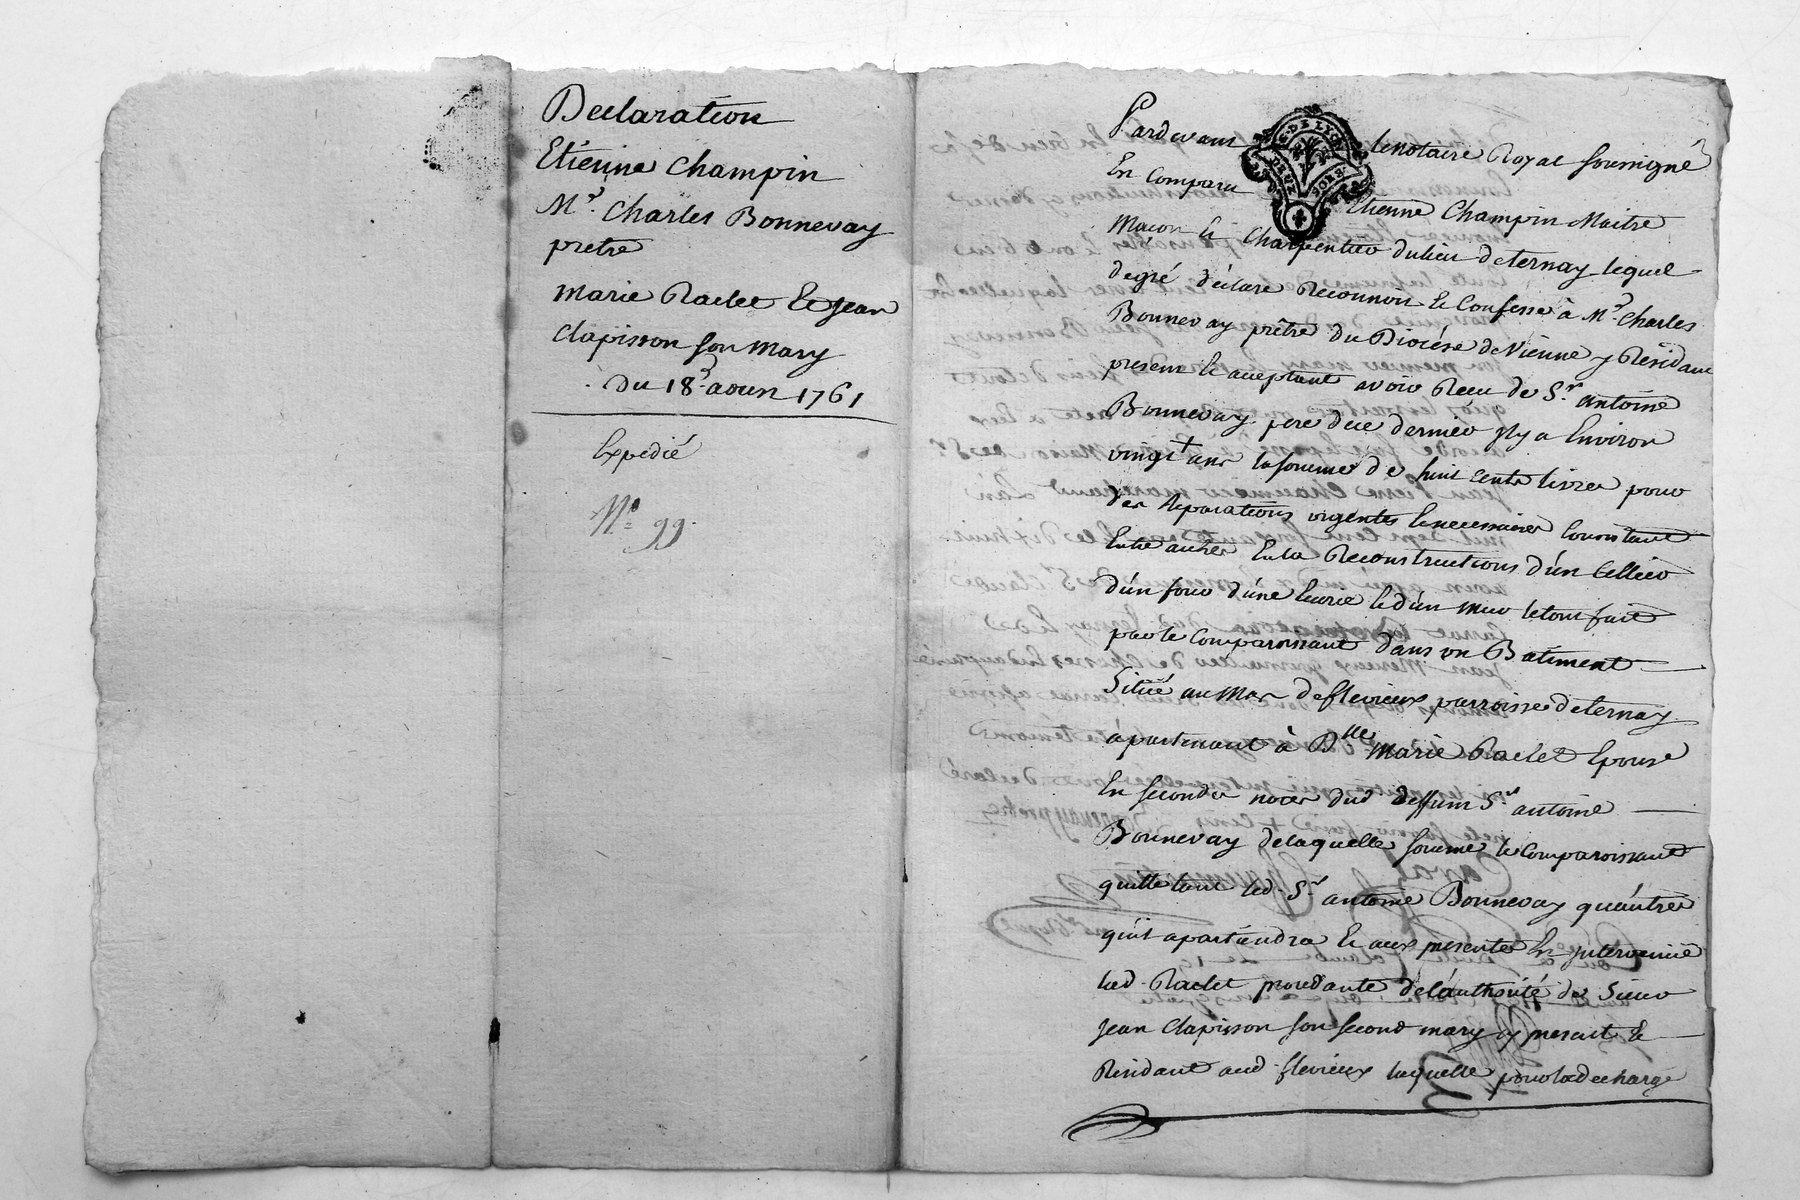 Declaration
Etienne Champin
Mr. Charles Bonnevay
pretre
Marie Raclet Et Jean
Clapisson son mary
Du 18e aoust 1761
Expedié
No 99.
Pardevant le notaire Royal soussigné
En Comparu Etienne Champin Maitre
Maçon & Charpentier du lieu de ternay lequel
de gré declare Reconnoit & Confesse à Mr. Charles
Bonnevay prêtre du Diocése de Vienne y Résidant
present & acceptant avoir Recu de Sr. antoine
Bonnevay pere dud dernier Il y a Environ
vingt ans la somme de huit cents livres pour
des Reparations urgentes & necessaires Consistant
Entre autres En la Reconstructions d'un Cellier
d'un four d'une Ecurie & d'un mur le tout fait
par le Comparoissant dans un Batiment
Situé au Mas de flevieux parroisse de ternay
apartenant à Dlle Marie Raclet Epouse
En Seconde noces dud deffunt Sr antoine
Bonnevay de laquelle somme le Comparoissant
quitte tant led. Sr antoine Bonnevay qu'autres
qu'il apartiendra & aux presentes Est Intervenüe
lad. Raclet procedante de l'authorité de Sieur
Jean Clapisson son Second mary cy present &
Residant aud. flevieux laquelle pour la decharge